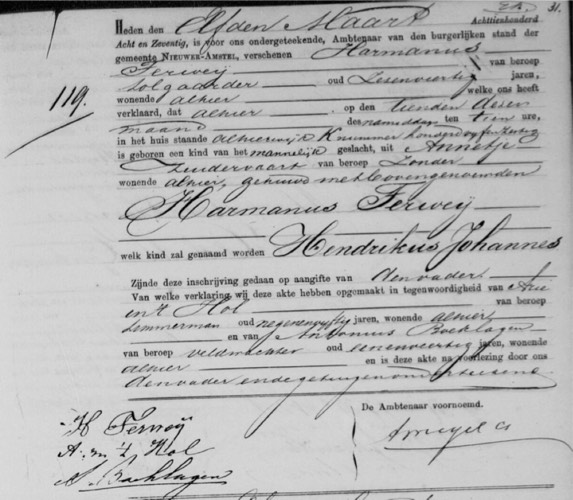 31.
Heden den Elfden Maart Achttienhonderd
Acht en Zeventig, is voor ons ondergeteekende, Ambtenaar van den burgerlijken stand der
gemeente NIEUWER-AMSTEL, verschenen Harmanus
Ferweij van beroep
tolgaarder oud zesenveertig jaren,
wonende alhier welke ons heeft
119.
verklaard, dat alhier, op den tienden dezer
maand des namiddags ten tien ure,
in het huis staande alhier wijk K nummer honderd
is geboren een kind van het mannelijk geslacht, uit Annetje
Zuidervaart van beroep Zonder
wonende alhier, gehuwd met bovengenoemden
Harmanus Ferweij
welk kind zal genaamd worden Hendrikus Johannes
Zijnde deze inschrijving gedaan op aangifte van den vader
Van welke verklaring wij deze akte hebben opgemaakt in tegenwoordigheid van Arie
in 't Hol van beroep
Temmerman oud negenenvijftig jaren, wonende alhier
en van Antonius Boeklagen
van beroep veldwachter oud eenenveertig jaren, wonende
alhier en is deze akte na voorlezing door ons
den vader en de getuigen onderteekend
De Ambtenaar voornoemd.
H Ferweij
A. in 't Hol
A. Boeklagen